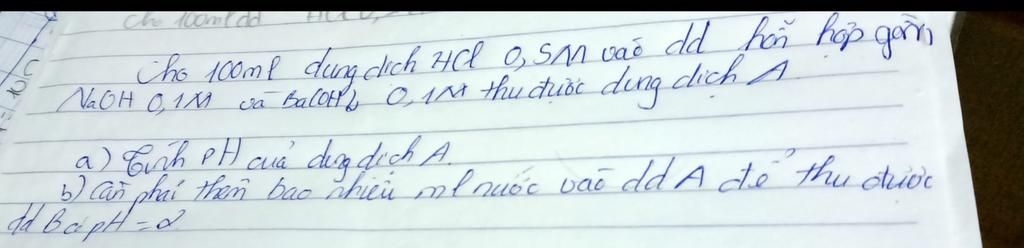 Cho 100ml dd HCl 0,
Cho 100ml dung dịch HCl 0,5M vào dd hỗn hợp gồm
NaOH 0,1M và Ba(OH)₂ 0,1M thu được dung dịch A
a) Tính pH của dung dịch A.
b) Cần phải thêm bao nhiêu ml nước vào dd A để thu được
dd B có pH = 2